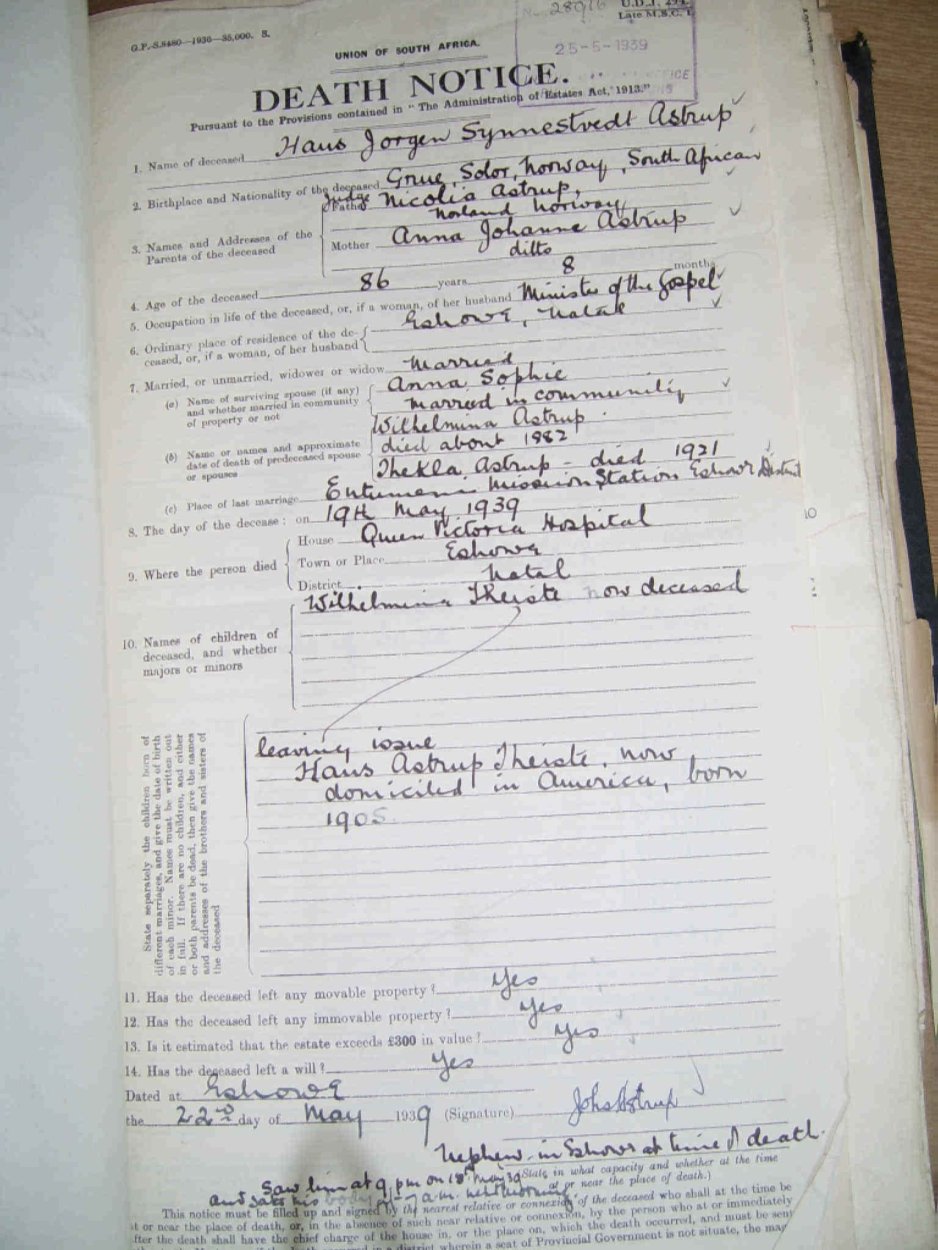 G.P.-S.8480—1936—35,000. S.
U.D.J. 294.
Late M.S.C. 1.
25-5-1939
UNION OF SOUTH AFRICA.
DEATH NOTICE.
Pursuant to the Provisions contained in "The Administration of Estates Act, 1913."
1. Name of deceased Hans Jorgen Synnestvedt Astrup
2. Birthplace and Nationality of the deceased Grue, Solor, Norway, South African
3. Names and Addresses of the Parents of the deceased
Father Judge Nicolia Astrup,
Norland Norway
Mother Anna Johanne Astrup
ditto
4. Age of the deceased 86 years 8 months
5. Occupation in life of the deceased, or, if a woman, of her husband Minister of the Gospel
6. Ordinary place of residence of the deceased, or, if a woman, of her husband Eshowe, Natal
7. Married, or unmarried, widower or widow Married
(a) Name of surviving spouse (if any) and whether married in community of property or not
Anna Sophie
Married in community
(b) Name or names and approximate date of death of predeceased spouse or spouses
Wilhelmina Astrup
died about 1882
Thekla Astrup - died 1921
(c) Place of last marriage Entumeni Mission Station Eshowe District
8. The day of the decease: on 19th May 1939
9. Where the person died
House Queen Victoria Hospital
Town or Place Eshowe
District Natal
10. Names of children of deceased, and whether majors or minors
Wilhelmina Theiste now deceased
State separately the children born of
different marriages, and give the date of birth
of each minor. Names must be written out
in full. If there are no children, and either
or both parents be dead, then give the names
and addresses of the brothers and sisters of
the deceased
leaving issue
Hans Astrup Theiste, now
domiciled in America, born
1905.
11. Has the deceased left any movable property? Yes
12. Has the deceased left any immovable property? Yes
13. Is it estimated that the estate exceeds £300 in value? Yes
14. Has the deceased left a will? Yes
Dated at Eshowe
the 22nd day of May 1939 (Signature) Johs Astrup
Nephew - in Eshowe at time of death.
(State in what capacity and whether at the time
at or near the place of death.)
Saw him at 9 pm on 18th May 39
and saw his body at 7 a.m. next morning
This notice must be filled up and signed by the nearest relative or connexion of the deceased who shall at the time be
at or near the place of death, or, in the absence of such near relative or connexion, by the person who at or immediately
after the death shall have the chief charge of the house in, or the place on, which the death occurred, and must be sent
wherein a seat of Provincial Government is not situate, the mag